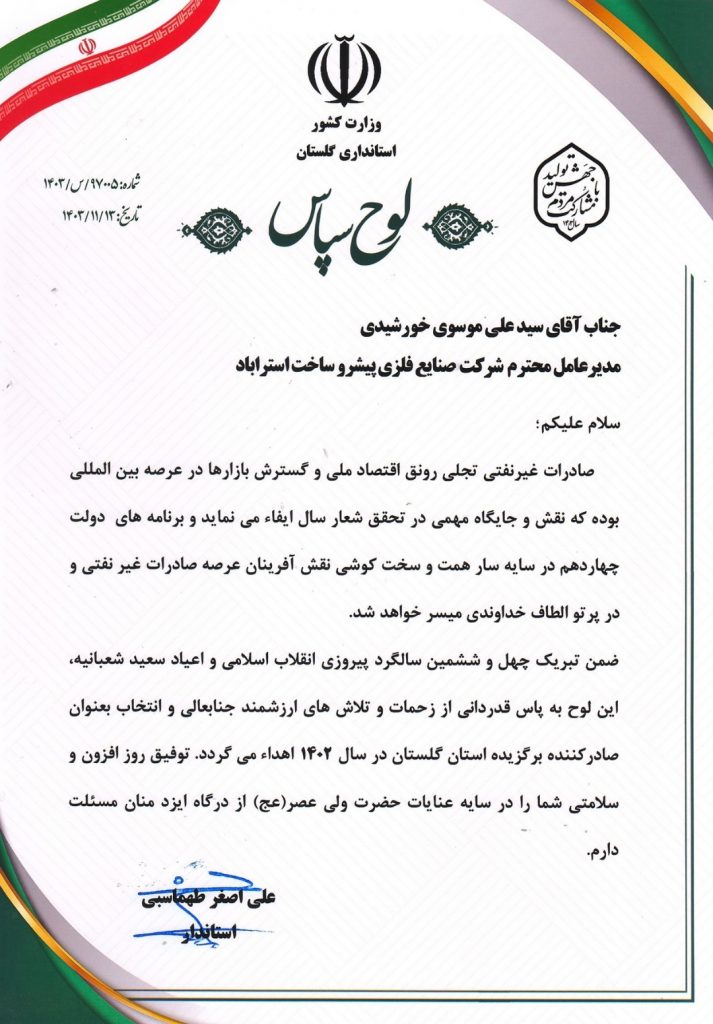 وزارت کشور
استانداری گلستان
شماره: ۹۷۰۰۵/س/۱۴۰۳
تاریخ: ۱۴۰۳/۱۱/۱۳
جهش تولید
با مشارکت مردم
سال ۱۴۰۳
لوح سپاس
جناب آقای سید علی موسوی خورشیدی
مدیرعامل محترم شرکت صنایع فلزی پیشرو ساخت استراباد
سلام علیکم؛
صادرات غیرنفتی تجلی رونق اقتصاد ملی و گسترش بازارها در عرصه بین المللی
بوده که نقش و جایگاه مهمی در تحقق شعار سال ایفاء می نماید و برنامه های دولت
چهاردهم در سایه سار همت و سخت کوشی نقش آفرینان عرصه صادرات غیر نفتی و
در پرتو الطاف خداوندی میسر خواهد شد.
ضمن تبریک چهل و ششمین سالگرد پیروزی انقلاب اسلامی و اعیاد سعید شعبانیه،
این لوح به پاس قدردانی از زحمات و تلاش های ارزشمند جنابعالی و انتخاب بعنوان
صادرکننده برگزیده استان گلستان در سال ۱۴۰۲ اهداء می گردد. توفیق روز افزون و
سلامتی شما را در سایه عنایات حضرت ولی عصر(عج) از درگاه ایزد منان مسئلت
دارم.
علی اصغر طهماسبی
استاندار